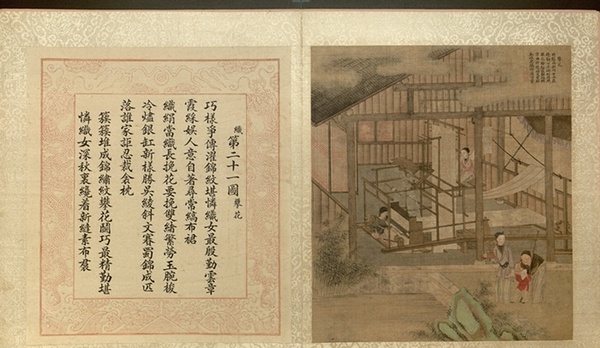 織第二十一圖 攀花
巧樣爭傳濯錦紋堪憐織女最殷勤雲章
霞綵娛人意自著尋常縞布裙
織絹當織長挽花要挽雙緒縈勞玉腕梭
冷燼銀缸新樣勝吳綾斜文賽蜀錦成匹
落誰家詎忍裁衾枕
簇簇堆成錦繡紋攀花鬪巧最精勤堪
憐織女深秋裏纔著新縫素布裠